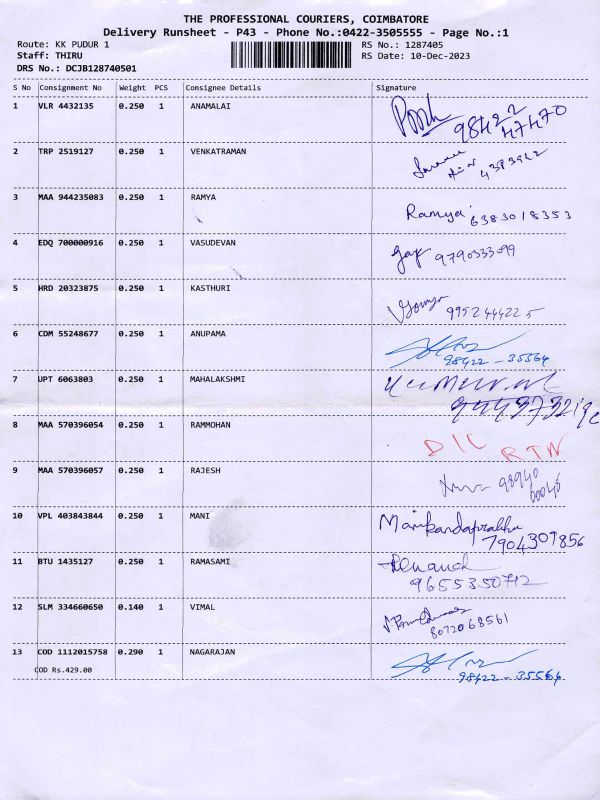 THE PROFESSIONAL COURIERS, COIMBATORE
Delivery Runsheet - P43 - Phone No.:0422-3505555 - Page No.:1
Route: KK PUDUR 1 RS No.: 1287405
Staff: THIRU RS Date: 10-Dec-2023
DRS No.: DCJB128740501
S No Consignment No Weight PCS Consignee Details Signature
1 VLR 4432135 0.250 1 ANAMALAI 98422
47470
2 TRP 2519127 0.250 1 VENKATRAMAN
4383942
3 MAA 944235083 0.250 1 RAMYA Ramya 6383018353
4 EDQ 700000916 0.250 1 VASUDEVAN 9790333099
5 HRD 20323875 0.250 1 KASTHURI 9952444225
6 CDM 55248677 0.250 1 ANUPAMA
98422-35564
7 UPT 6063803 0.250 1 MAHALAKSHMI
8 MAA 570396054 0.250 1 RAMMOHAN D/L RTN
9 MAA 570396057 0.250 1 RAJESH 98940
00045
10 VPL 403843844 0.250 1 MANI Manikandaprabhu
7904309856
11 BTU 1435127 0.250 1 RAMASAMI
9655350712
12 SLM 334660650 0.140 1 VIMAL
8072068561
13 COD 1112015758 0.290 1 NAGARAJAN
COD Rs.429.00 98422-35564